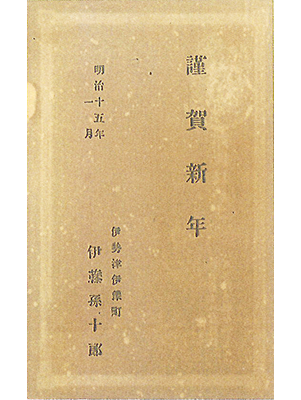 謹賀新年
明治十五年
一月
伊勢津伊豫町
伊藤孫十郎